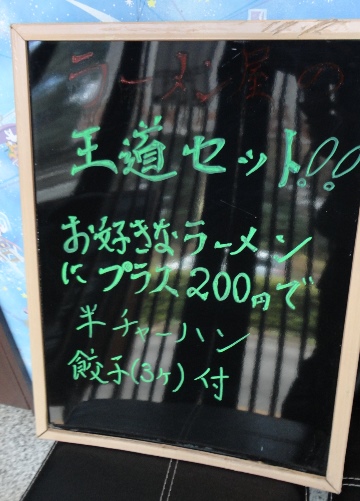 ラーメン屋の
王道セット!!
お好きなラーメン
にプラス200円で
半チャーハン
餃子(3ヶ)付